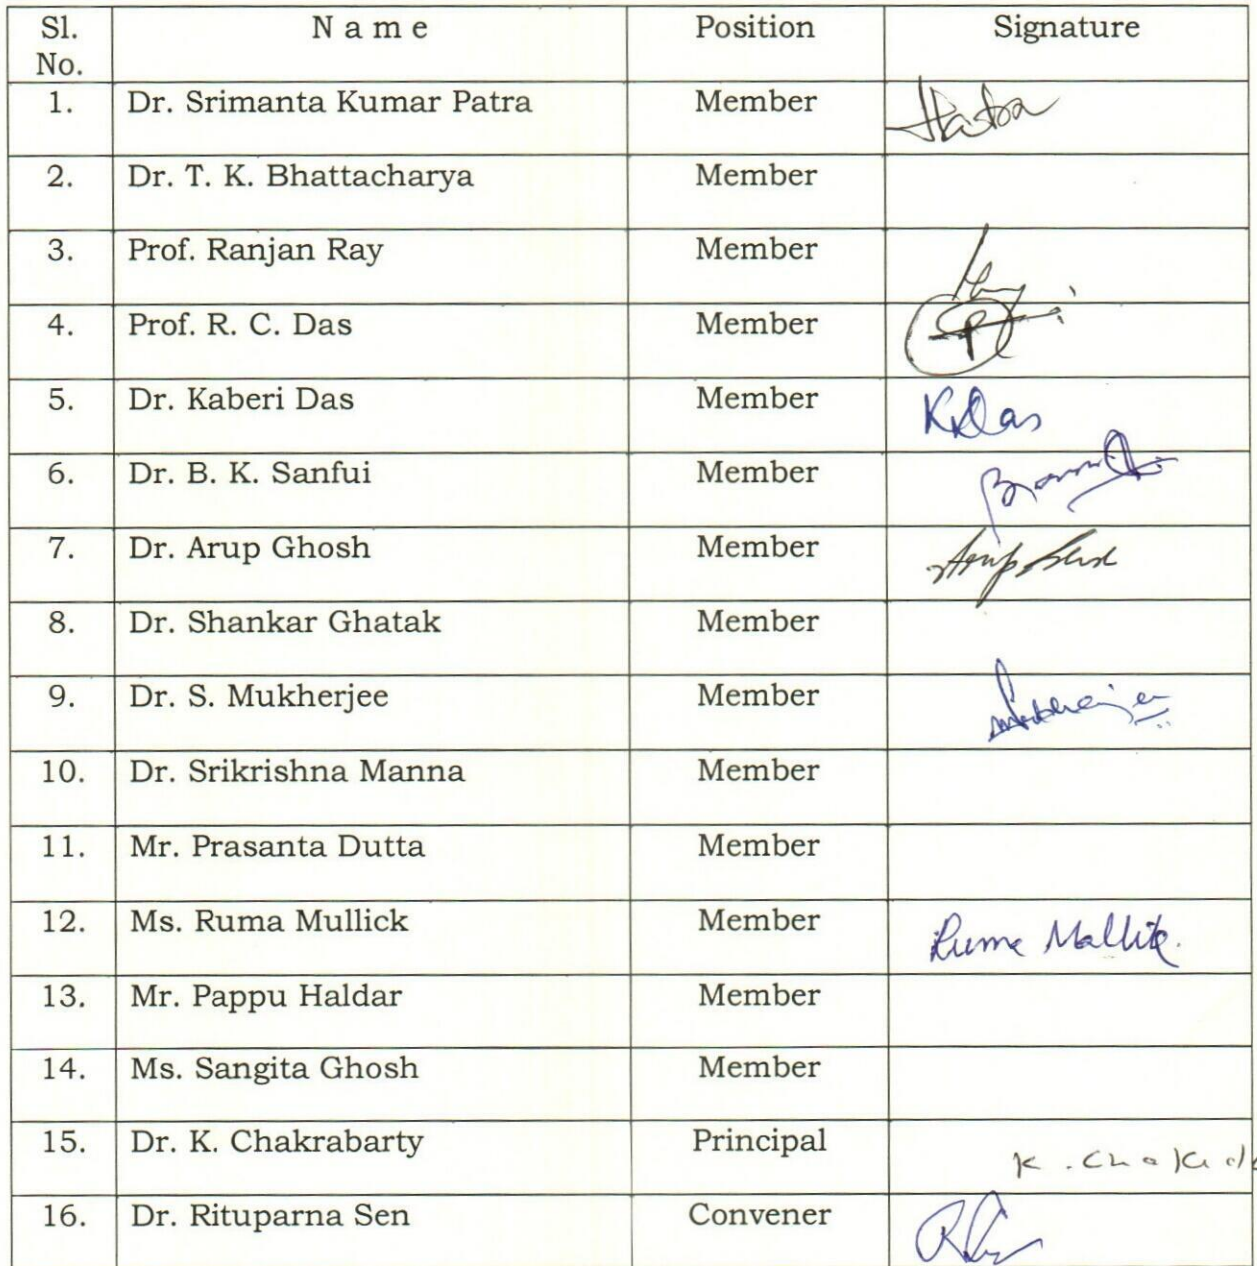 Sl. No. N a m e Position Signature
1. Dr. Srimanta Kumar Patra Member
2. Dr. T. K. Bhattacharya Member
3. Prof. Ranjan Ray Member
4. Prof. R. C. Das Member
5. Dr. Kaberi Das Member KDas
6. Dr. B. K. Sanfui Member
7. Dr. Arup Ghosh Member Arup
8. Dr. Shankar Ghatak Member
9. Dr. S. Mukherjee Member
10. Dr. Srikrishna Manna Member
11. Mr. Prasanta Dutta Member
12. Ms. Ruma Mullick Member Ruma Mallik.
13. Mr. Pappu Haldar Member
14. Ms. Sangita Ghosh Member
15. Dr. K. Chakrabarty Principal K.
16. Dr. Rituparna Sen Convener